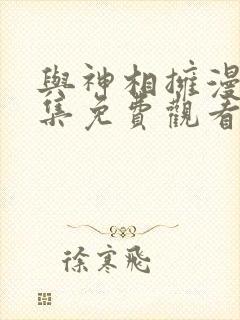 與神相擁漫
集免費觀看
徐寒飛